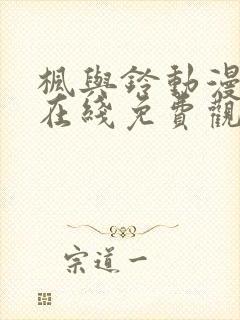 楓與鈴動漫
在綫免費觀
宗道一